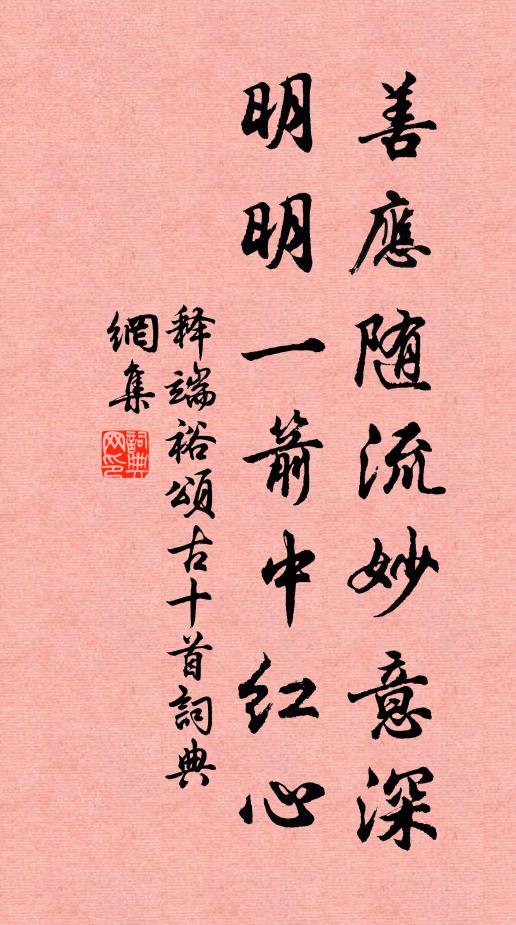 善應随流妙意深
明明一箭中红心
释端裕頌古十首詞典
網集
詞典网印